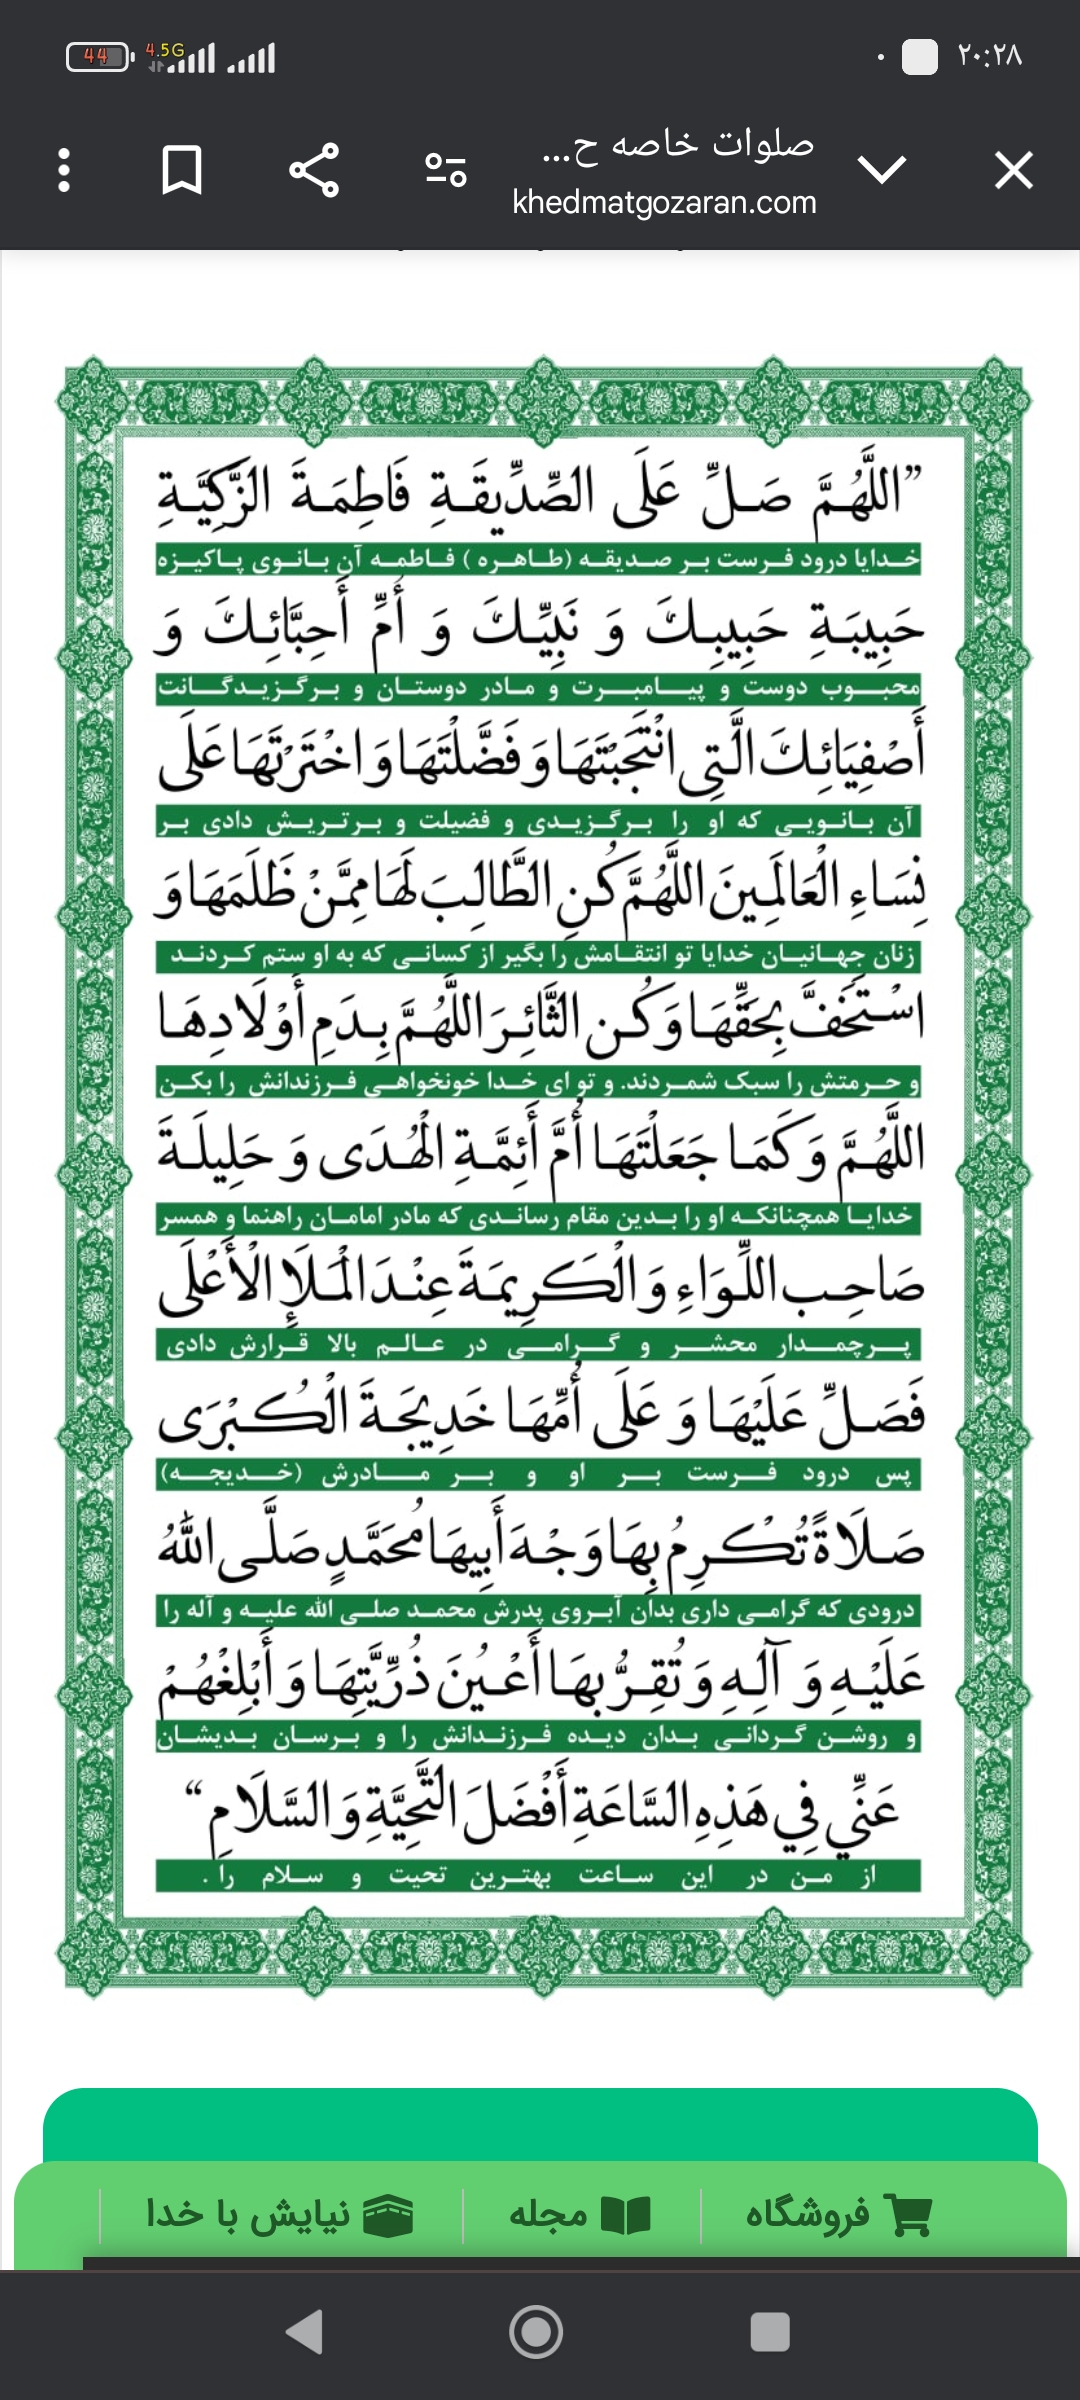 44 4.5G ۲۰:۲۸
صلوات خاصه ح...
khedmatgozaran.com
”اللَّهُمَّ صَلِّ عَلَى الصِّدِّيقَةِ فَاطِمَةَ الزَّكِيَّةِ
خدایا درود فرست بر صدیقه (طاهره) فاطمه آن بانوی پاکیزه
حَبِيبَةِ حَبِيبِكَ وَ نَبِيِّكَ وَ أُمِّ أَحِبَّائِكَ وَ
محبوب دوست و پیامبرت و مادر دوستان و برگزیدگانت
أَصْفِيَائِكَ الَّتِي انْتَجَبْتَهَا وَ فَضَّلْتَهَا وَ اخْتَرْتَهَا عَلَى
آن بانویی که او را برگزیدی و فضیلت و برتریش دادی بر
نِسَاءِ الْعَالَمِينَ اللَّهُمَّ كُنِ الطَّالِبَ لَهَا مِمَّنْ ظَلَمَهَا وَ
زنان جهانیان خدایا تو انتقامش را بگیر از کسانی که به او ستم کردند
اسْتَخَفَّ بِحَقِّهَا وَ كُنِ الثَّائِرَ اللَّهُمَّ بِدَمِ أَوْلَادِهَا
و حرمتش را سبک شمردند. و تو ای خدا خونخواهی فرزندانش را بکن
اللَّهُمَّ وَ كَمَا جَعَلْتَهَا أُمَّ أَئِمَّةِ الْهُدَى وَ حَلِيلَةَ
خدایا همچنانکه او را بدین مقام رساندی که مادر امامان راهنما و همسر
صَاحِبِ اللِّوَاءِ وَ الْكَرِيمَةَ عِنْدَ الْمَلَإِ الْأَعْلَى
پرچمدار محشر و گرامی در عالم بالا قرارش دادی
فَصَلِّ عَلَيْهَا وَ عَلَى أُمِّهَا خَدِيجَةَ الْكُبْرَى
پس درود فرست بر او و بر مادرش (خدیجه)
صَلَاةً تُكْرِمُ بِهَا وَجْهَ أَبِيهَا مُحَمَّدٍ صَلَّى اللَّهُ
درودی که گرامی داری بدان آبروی پدرش محمد صلی الله علیه و آله را
عَلَيْهِ وَ آلِهِ وَ تُقِرُّ بِهَا أَعْيُنَ ذُرِّيَّتِهَا وَ أَبْلِغْهُمْ
و روشن گردانی بدان دیده فرزندانش را و برسان بدیشان
عَنِّي فِي هَذِهِ السَّاعَةِ أَفْضَلَ التَّحِيَّةِ وَ السَّلَامِ“
از من در این ساعت بهترین تحیت و سلام را .
فروشگاه مجله نیایش با خدا